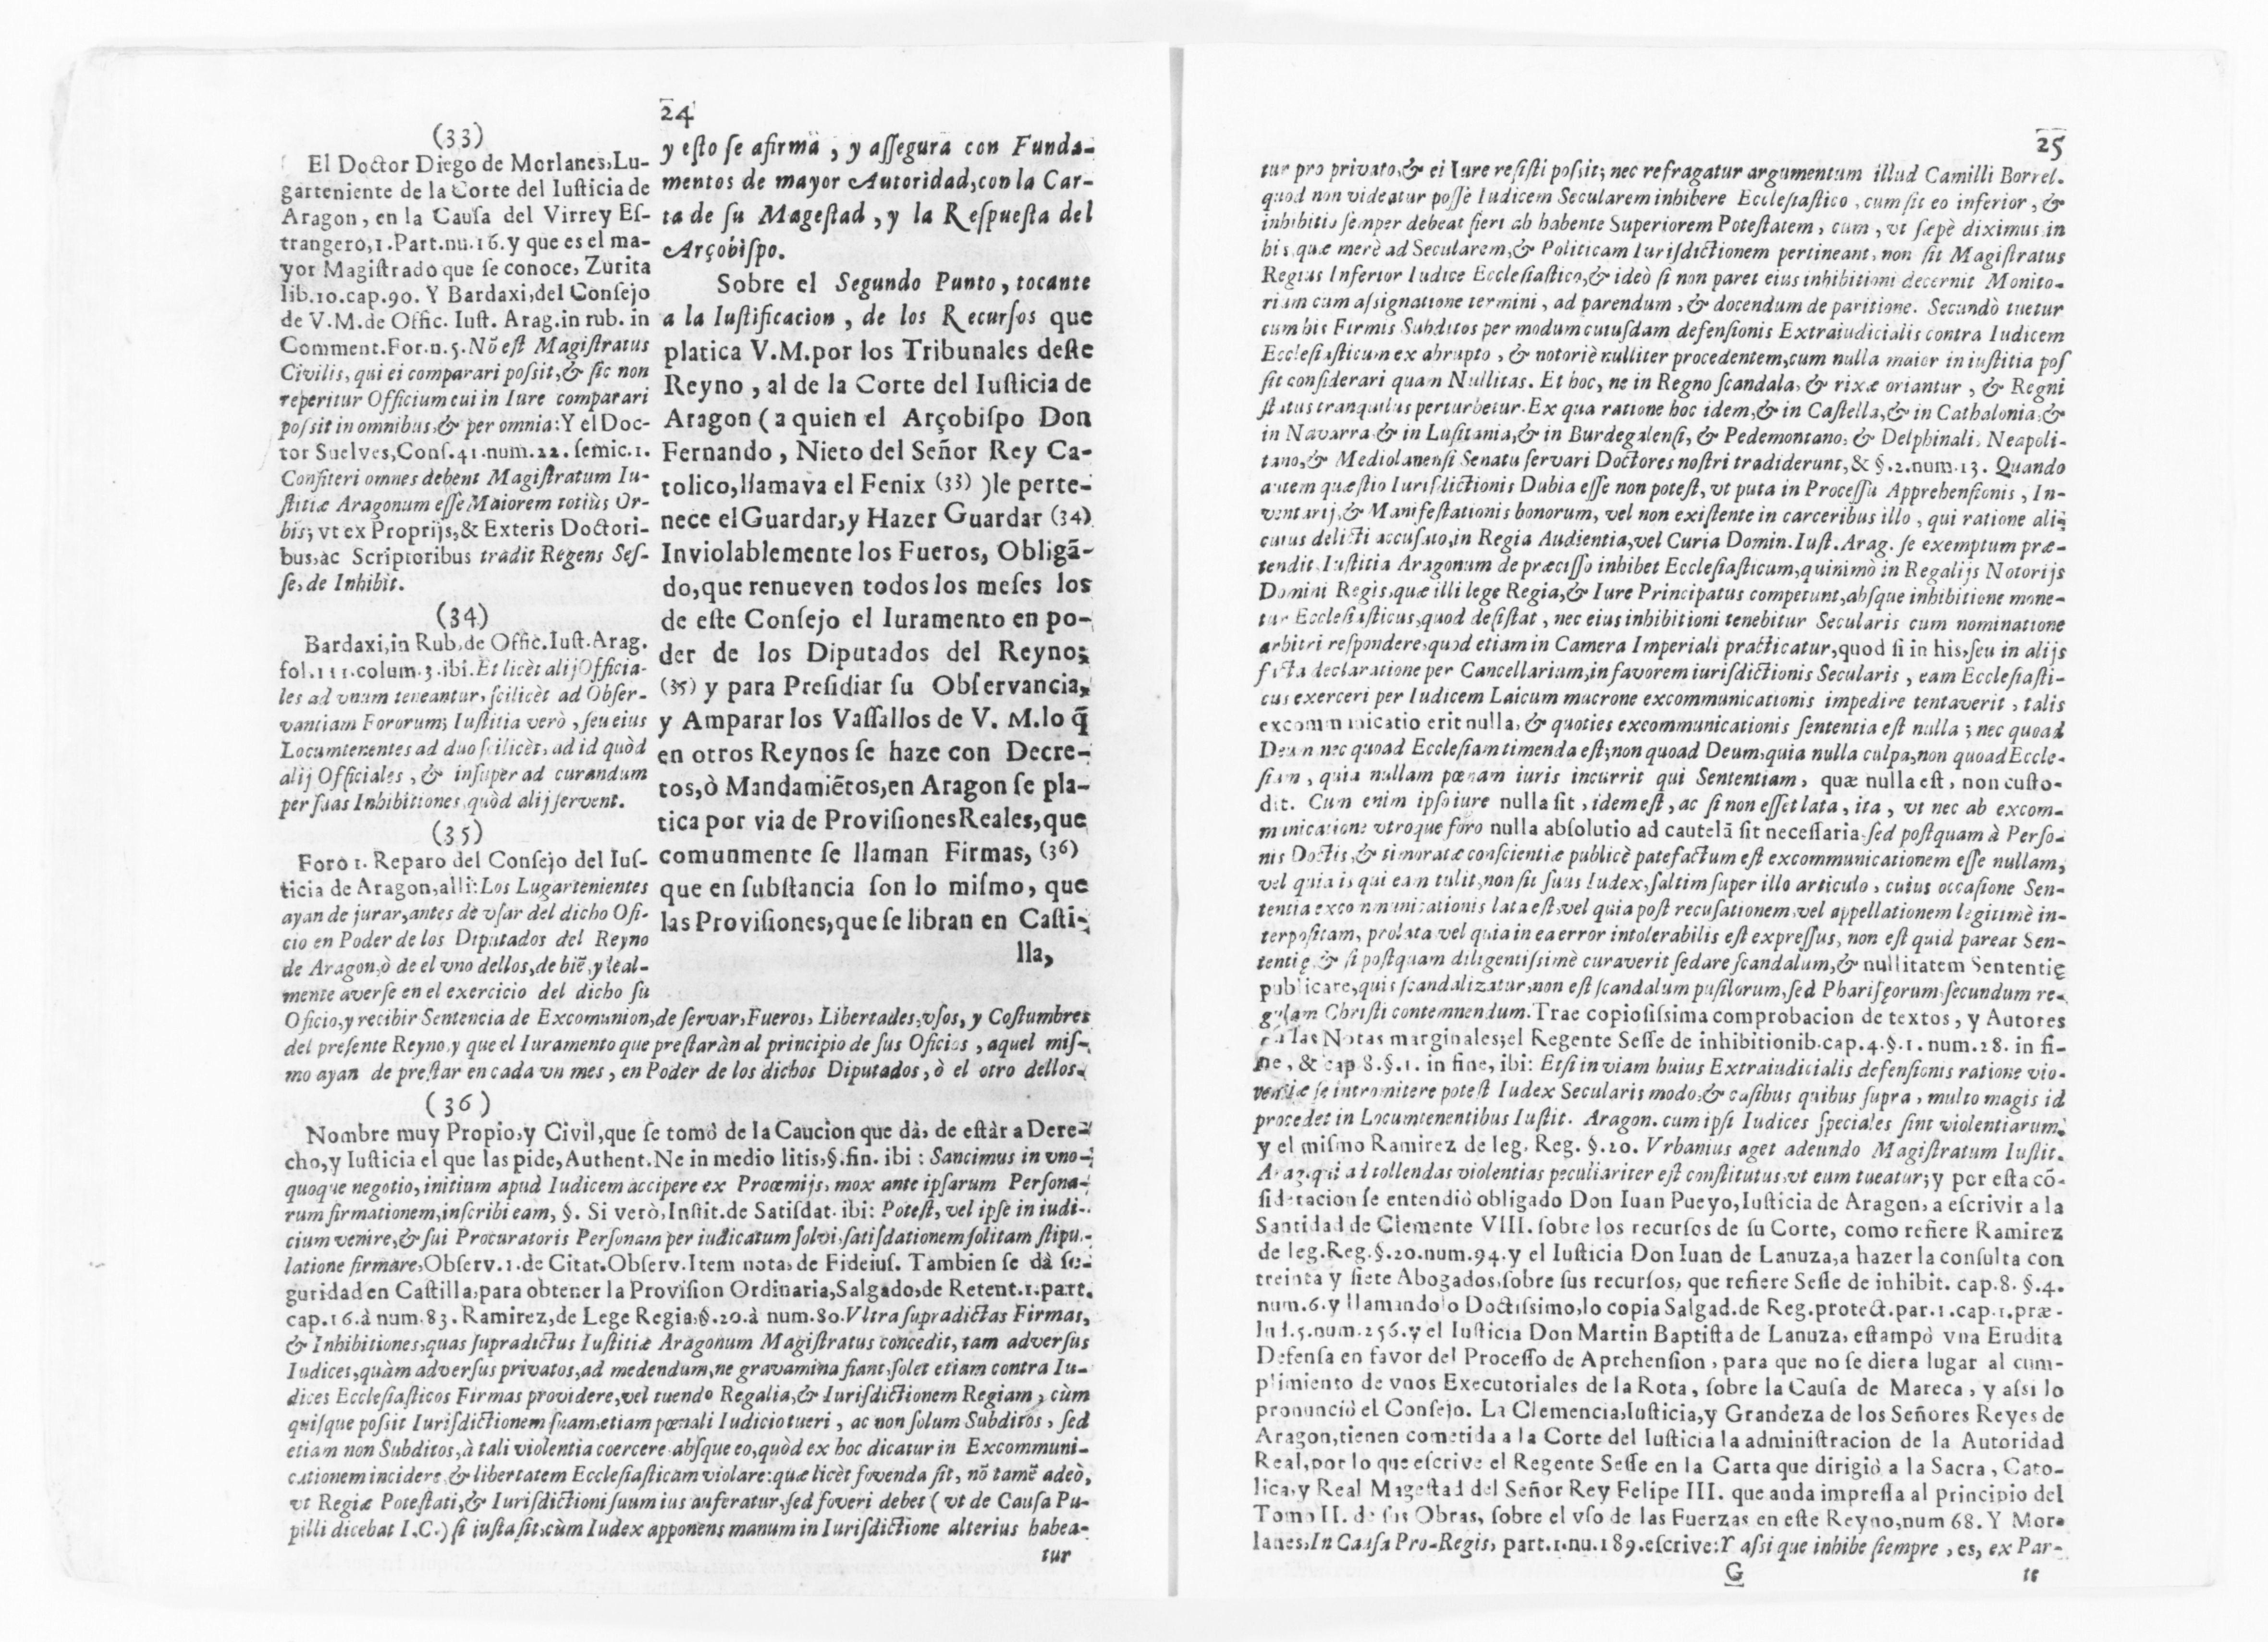 24
(33)
El Doctor Diego de Morlanes, Lu-
garteniente de la Corte del Iusticia de
Aragon, en la Causa del Virrey Es-
trangero, 1. Part. nu. 16. y que es el ma-
yor Magistrado que se conoce, Zurita
lib. 10. cap. 90. Y Bardaxi, del Consejo
de V.M. de Offic. Iust. Arag. in rub. in
Comment. For. n. 5. Nõ est Magistratus
Civilis, qui ei comparari possit, & sic non
reperitur Officium cui in Iure comparari
possit in omnibus, & per omnia: Y el Doc-
tor Suelves, Cons. 41. num. 22. semic. 1.
Confiteri omnes debent Magistratum Iu-
stitiæ Aragonum esse Maiorem totiùs Or-
bis; vt ex Proprijs, & Exteris Doctori-
bus, ac Scriptoribus tradit Regens Ses-
se, de Inhibit.
(34)
Bardaxi, in Rub. de Offic. Iust. Arag.
fol. 111. colum. 3. ibi. Et licèt alij Officia-
les ad vnum teneantur, scilicèt ad Obser-
vantiam Fororum; Iustitia verò, seu eius
Locumtenentes ad duo scilicèt, ad id quòd
alij Officiales, & insuper ad curandum
per suas Inhibitiones, quòd alij servent.
(35)
Foro 1. Reparo del Consejo del Ius-
ticia de Aragon, alli: Los Lugartenientes
ayan de jurar, antes de vsar del dicho Ofi-
cio en Poder de los Diputados del Reyno
de Aragon, ò de el vno dellos, de biẽ, y leal-
mente averse en el exercicio del dicho su
Oficio, y recibir Sentencia de Excomunion, de servar, Fueros, Libertades, vsos, y Costumbres
del presente Reyno, y que el Iuramento que prestaràn al principio de sus Oficios, aquel mis-
mo ayan de prestar en cada vn mes, en Poder de los dichos Diputados, ò el otro dellos.
y esto se afirma, y assegura con Funda-
mentos de mayor Autoridad, con la Car-
ta de su Magestad, y la Respuesta del
Arçobispo.
Sobre el Segundo Punto, tocante
a la Iustificacion, de los Recursos que
platica V.M. por los Tribunales deste
Reyno, al de la Corte del Iusticia de
Aragon (a quien el Arçobispo Don
Fernando, Nieto del Señor Rey Ca-
tolico, llamava el Fenix (33) ) le perte-
nece el Guardar, y Hazer Guardar (34)
Inviolablemente los Fueros, Obligã-
do, que renueven todos los meses los
de este Consejo el Iuramento en po-
der de los Diputados del Reyno;
(35) y para Presidiar su Observancia,
y Amparar los Vassallos de V. M. lo q̃
en otros Reynos se haze con Decre-
tos, ò Mandamiẽtos, en Aragon se pla-
tica por via de Provisiones Reales, que
comunmente se llaman Firmas, (36)
que en substancia son lo mismo, que
las Provisiones, que se libran en Casti-
lla,
(36)
Nombre muy Propio, y Civil, que se tomò de la Caucion que dà, de estàr a Dere-
cho, y Iusticia el que las pide, Authent. Ne in medio litis, §. fin. ibi: Sancimus in vno-
quoque negotio, initium apud Iudicem accipere ex Proœmijs, mox ante ipsarum Persona-
rum firmationem, inscribi eam, §. Si verò, Instit. de Satisdat. ibi: Potest, vel ipse in iudi-
cium venire, & sui Procuratoris Personam per iudicatum solvi, satisdationem solitam stipu-
latione firmare, Observ. 1. de Citat. Observ. Item nota, de Fideius. Tambien se dà se-
guridad en Castilla, para obtener la Provision Ordinaria, Salgado, de Retent. 1. part.
cap. 16. à num. 83. Ramirez, de Lege Regia, §. 20. à num. 80. Vltra supradictas Firmas,
& Inhibitiones, quas supradictus Iustitiæ Aragonum Magistratus concedit, tam adversus
Iudices, quàm adversus privatos, ad medendum, ne gravamina fiant, solet etiam contra Iu-
dices Ecclesiasticos Firmas providere, vel tuendo Regalia, & Iurisdictionem Regiam, cùm
quisque possit Iurisdictionem suam, etiam pœnali Iudicio tueri, ac non solum Subditos, sed
etiam non Subditos, à tali violentia coercere absque eo, quòd ex hoc dicatur in Excommuni-
cationem incidere, & libertatem Ecclesiasticam violare: quæ licèt fovenda sit, nõ tamẽ adeò,
vt Regiæ Potestati, & Iurisdictioni suum ius auferatur, sed foveri debet (vt de Causa Pu-
pilli dicebat I.C.) si iusta sit, cùm Iudex apponens manum in Iurisdictione alterius habea-
tur
25
tur pro privato, & ei Iure resisti possit; nec refragatur argumentum illud Camilli Borrel.
quod non videatur posse Iudicem Secularem inhibere Ecclesiastico, cum sit eo inferior, &
inhibitio semper debeat fieri ab habente Superiorem Potestatem, cum, vt sæpè diximus in
his, quæ merè ad Secularem, & Politicam Iurisdictionem pertineant, non sit Magistratus
Regius Inferior Iudice Ecclesiastico, & ideò si non paret eius inhibitioni decernit Monito-
rium cum assignatione termini, ad parendum, & docendum de paritione. Secundò tuetur
cum his Firmis Subditos per modum cuiusdam defensionis Extraiudicialis contra Iudicem
Ecclesiasticum ex abrupto, & notoriè nulliter procedentem, cum nulla maior in iustitia pos
sit considerari quam Nullitas. Et hoc, ne in Regno scandala, & rixæ oriantur, & Regni
status tranquilus perturbetur. Ex qua ratione hoc idem, & in Castella, & in Cathalonia, &
in Navarra & in Lusitania, & in Burdegalensi, & Pedemontano, & Delphinali, Neapoli-
tano, & Mediolanensi Senatu servari Doctores nostri tradiderunt, & §. 2. num. 13. Quando
autem quæstio Iurisdictionis Dubia esse non potest, vt puta in Processu Apprehensionis, In-
ventarij, & Manifestationis bonorum, vel non existente in carceribus illo, qui ratione ali-
cuius delicti accusato, in Regia Audientia, vel Curia Domin. Iust. Arag. se exemptum præ-
tendit, Iustitia Aragonum de præcisso inhibet Ecclesiasticum, quinimò in Regalijs Notorijs
Domini Regis, quæ illi lege Regia, & Iure Principatus competunt, absque inhibitione mone-
tur Ecclesiasticus, quod desistat, nec eius inhibitioni tenebitur Secularis cum nominatione
arbitri respondere, quod etiam in Camera Imperiali practicatur, quod si in his, seu in alijs
facta declaratione per Cancellarium, in favorem iurisdictionis Secularis, eam Ecclesiasti-
cus exerceri per Iudicem Laicum mucrone excommunicationis impedire tentaverit, talis
excommunicatio erit nulla, & quoties excommunicationis sententia est nulla; nec quoad
Deum nec quoad Ecclesiam timenda est; non quoad Deum, quia nulla culpa, non quoad Eccle-
siam, quia nullam pœnam iuris incurrit qui Sententiam, quæ nulla est, non custo-
dit. Cum enim ipso iure nulla sit, idem est, ac si non esset lata, ita, vt nec ab excom-
municatione vtroque foro nulla absolutio ad cautelã sit necessaria, sed postquam à Perso-
nis Doctis, & timoratæ conscientiæ publicè patefactum est excommunicationem esse nullam,
vel quia is qui eam tulit, non sit suus Iudex, saltim super illo articulo, cuius occasione Sen-
tentia excommunicationis lata est, vel quia post recusationem, vel appellationem legitimè in-
terpositam, prolata vel quia in ea error intolerabilis est expressus, non est quid pareat Sen-
tentię, & si postquam diligentissimè curaverit sedare scandalum, & nullitatem Sententię
publicare, quis scandalizatur, non est scandalum pusilorum, sed Pharisęorum, secundum re-
gulam Christi contemnendum. Trae copiosissima comprobacion de textos, y Autores
a las Notas marginales; el Regente Sesse de inhibitionib. cap. 4. §. 1. num. 28. in fi-
ne, & cap. 8. §. 1. in fine, ibi: Etsi in viam huius Extraiudicialis defensionis ratione vio-
lentiæ se intromitere potest Iudex Secularis modo, & casibus quibus supra, multo magis id
procedet in Locumtenentibus Iustit. Aragon. cum ipsi Iudices speciales sint violentiarum,
y el mismo Ramirez de leg. Reg. §. 20. Vrbanius aget adeundo Magistratum Iustit.
Arag. qui ad tollendas violentias peculiariter est constitutus, vt eum tueatur; y por esta cõ-
sideracion se entendiò obligado Don Iuan Pueyo, Iusticia de Aragon, a escrivir a la
Santidad de Clemente VIII. sobre los recursos de su Corte, como refiere Ramirez
de leg. Reg. §. 20. num. 94. y el Iusticia Don Iuan de Lanuza, a hazer la consulta con
treinta y siete Abogados, sobre sus recursos, que refiere Sesse de inhibit. cap. 8. §. 4.
num. 6. y llamandolo Doctissimo, lo copia Salgad. de Reg. protect. par. 1. cap. 1. præ-
lud. 5. num. 256. y el Iusticia Don Martin Baptista de Lanuza, estampò vna Erudita
Defensa en favor del Processo de Aprehension, para que no se diera lugar al cum-
plimiento de vnos Executoriales de la Rota, sobre la Causa de Mareca, y assi lo
pronunciò el Consejo. La Clemencia, Iusticia, y Grandeza de los Señores Reyes de
Aragon, tienen cometida a la Corte del Iusticia la administracion de la Autoridad
Real, por lo que escrive el Regente Sesse en la Carta que dirigiò a la Sacra, Cato-
lica, y Real Magestad del Señor Rey Felipe III. que anda impressa al principio del
Tomo II. de sus Obras, sobre el vso de las Fuerzas en este Reyno, num 68. Y Mor-
lanes, In Causa Pro-Regis, part. 1. nu. 189. escrive: Y assi que inhibe siempre, es, ex Par-
G
te